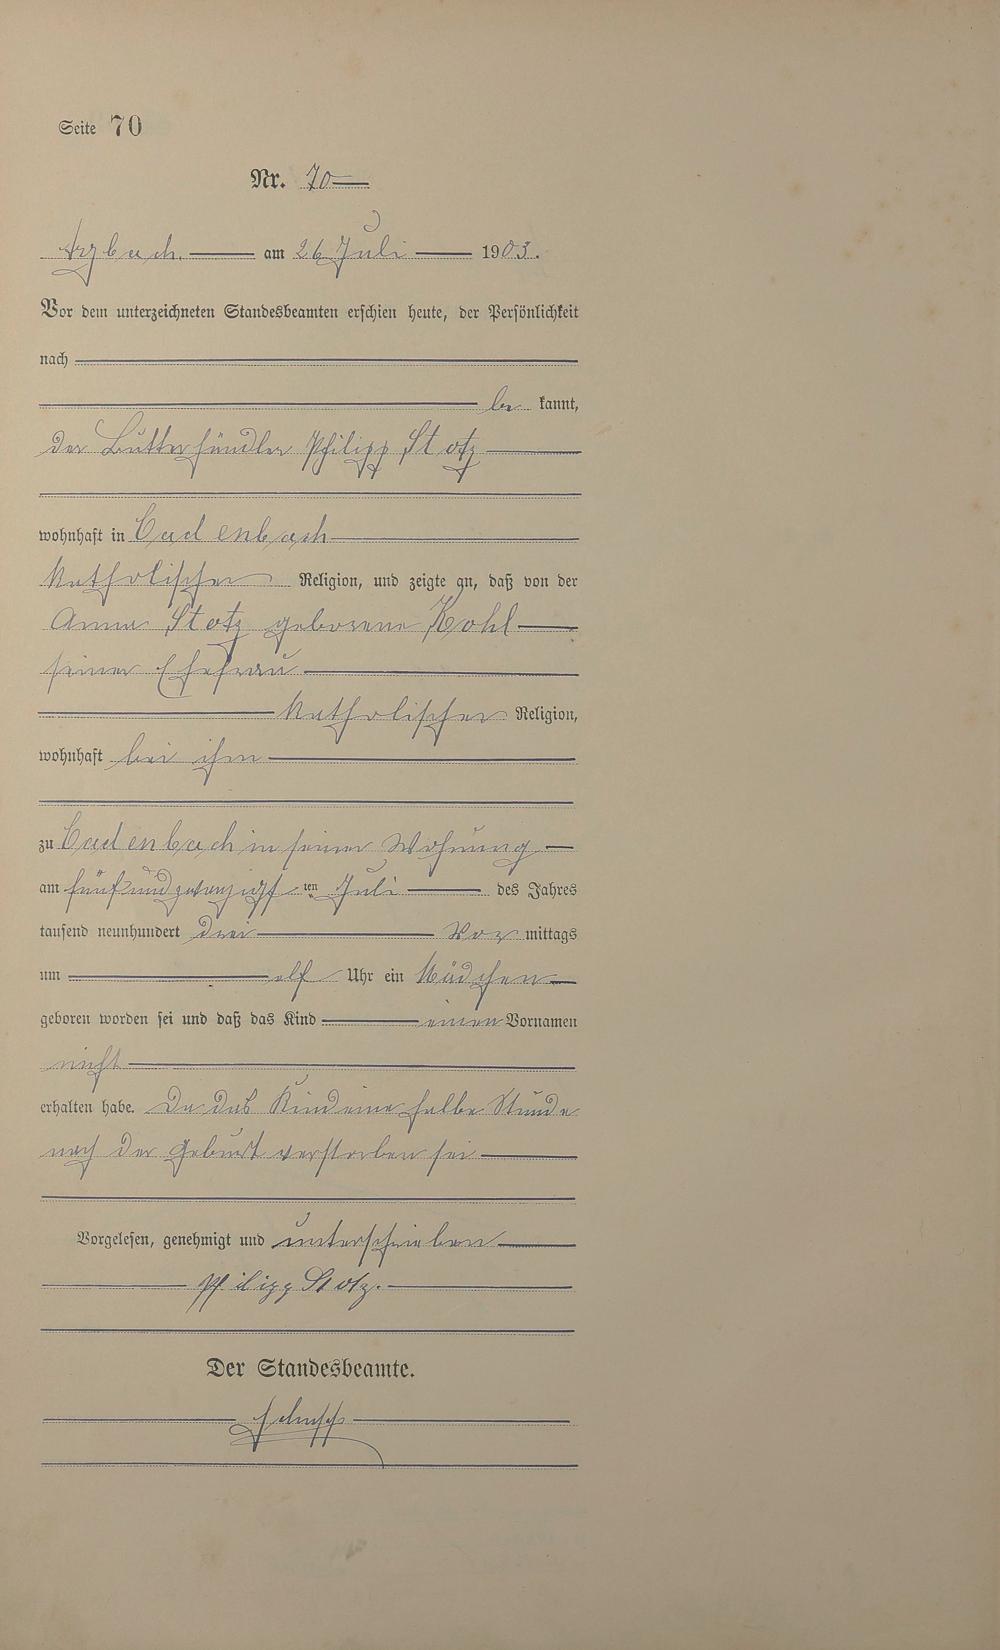 Seite 70
Nr. 70
Arzbach am 26 Juli 1903.
Vor dem unterzeichneten Standesbeamten erschien heute, der Persönlichkeit
nach
be kannt,
der Butterhändler Philipp Stotz
wohnhaft in Cadenbach
katholischer Religion, und zeigte an, daß von der
Anna Stotz geborene Kohl
seiner Ehefrau
katholischer Religion,
wohnhaft bei ihm
zu Cadenbach in seiner Wohnung
am fünfundzwanzigs ten Juli des Jahres
tausend neunhundert drei Vor mittags
um elf Uhr ein Mädchen
geboren worden sei und daß das Kind einen Vornamen
nicht
erhalten habe. Da das Kind eine halbe Stunde
nach der Geburt verstorben sei
Vorgelesen, genehmigt und unterschrieben
Philipp Stotz.
Der Standesbeamte.